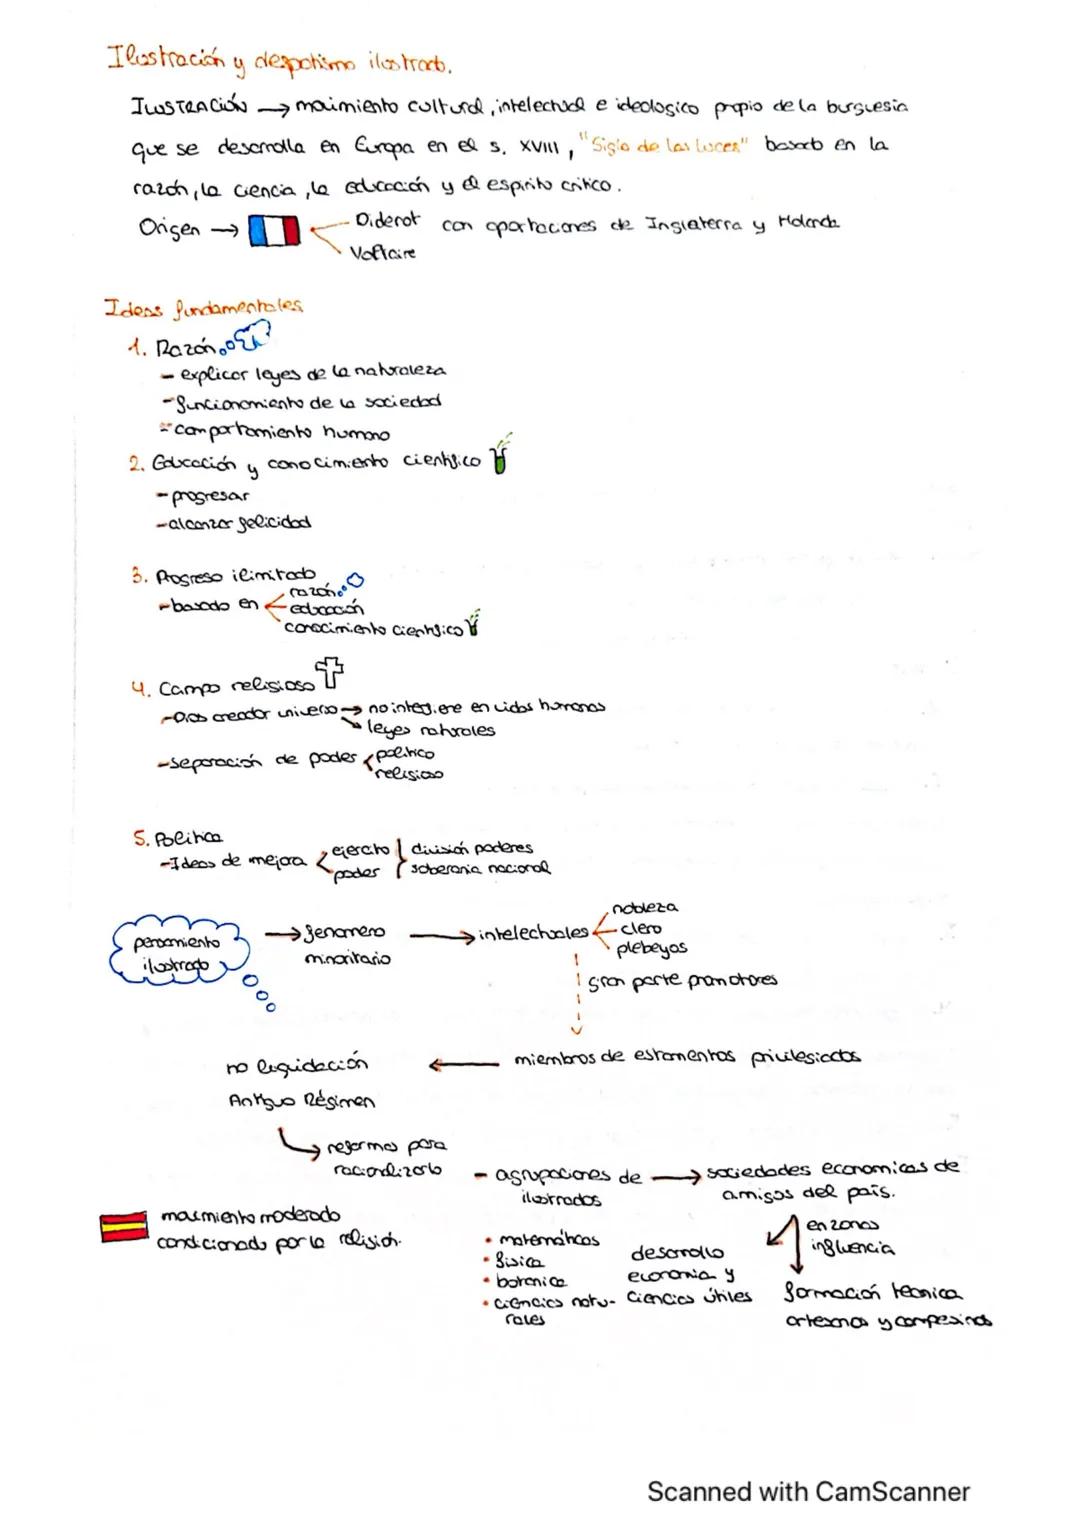 Ilustración y despotismo ilustrado.
ILUSTRACIÓN → movimiento cultural, intelectual e ideologico propio de la burguesia
que se desarrolla en Europa en el s. XVIII, "Siglo de las luces" basado en la
razón, la ciencia, la educación y el espiritu critico.
Origen → Diderot con aportaciones de Inglaterra y Holanda
Voltaire
Ideas fundamentales
1. Razón
- explicar leyes de la naturaleza
- funcionamiento de la sociedad
- comportamiento humano
2. Educación y conocimiento cientifico
- progresar
- alcanzar felicidad
3. Progreso ilimitado
- basado en razón
educación
conocimiento cientifico
4. Campo religioso
- Dios creador universo → no interfiere en vidas humanas
leyes naturales
- separación de poderes politico
religioso
5. Politica
- Ideas de mejora ejercito división poderes
poder soberania nacional
pensamiento
ilustrado
→ fenomeno
minoritario
→ intelectuales nobleza
clero
plebeyos
gran parte promotores
miembros de estamentos privilegiados
no liquidación
Antiguo Régimen
reformas para
racionalizarlo
- agrupaciones de → sociedades economicas de
ilustrados amigos del país.
movimiento moderado
condicionado por la religión.
• matemáticas
• fisica
• botanica
• ciencias natu-
rales
desarrollo
economia y
ciencias útiles
en zonas
influencia
formación tecnica
artesanos y campesinos
Scanned with CamScanner